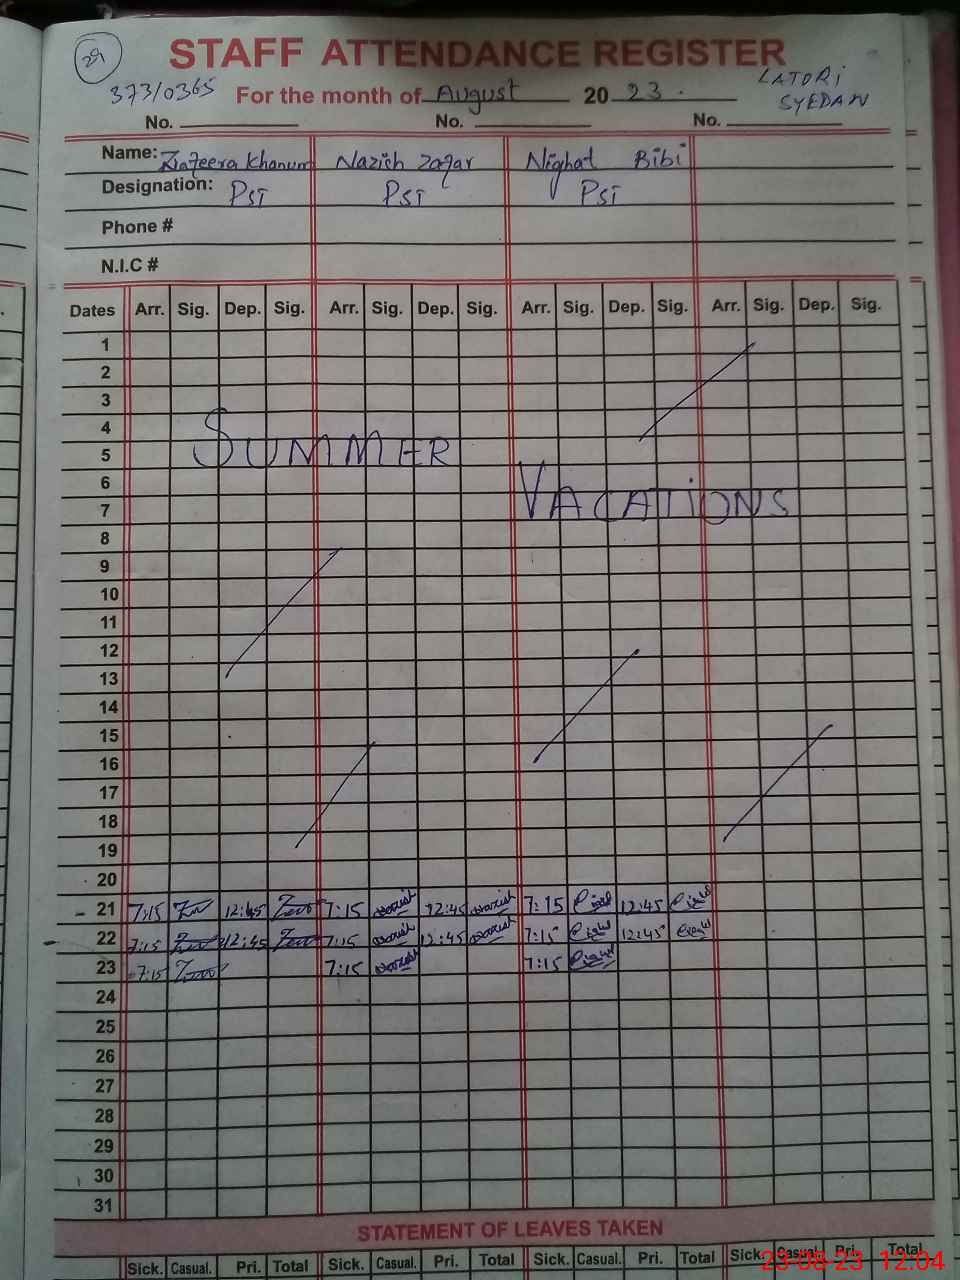 29
STAFF ATTENDANCE REGISTER
373/0365 For the month of August 20 23. LATORI
SYEDAN
No. No. No.
Name: Khanum Nazish Zafar Nighat Bibi
Designation: PST PST PST
Phone #
N.I.C #
Dates Arr. Sig. Dep. Sig. Arr. Sig. Dep. Sig. Arr. Sig. Dep. Sig. Arr. Sig. Dep. Sig.
1
2
3
4
SUMMER
5
6
VACATIONS
7
8
9
10
11
12
13
14
15
16
17
18
19
20
21 7:15 12:45 7:15 Nazish 12:45 Nazish 7:15 12:45
22 7:15 12:45 7:15 Nazish 12:45 Nazish 7:15 12:45
23 7:15 7:15 Nazish 7:15
24
25
26
27
28
29
30
31
STATEMENT OF LEAVES TAKEN
Sick. Casual. Pri. Total Sick. Casual. Pri. Total Sick. Casual. Pri. Total Sick. Casual. Pri. Total
23-08-23 12:04